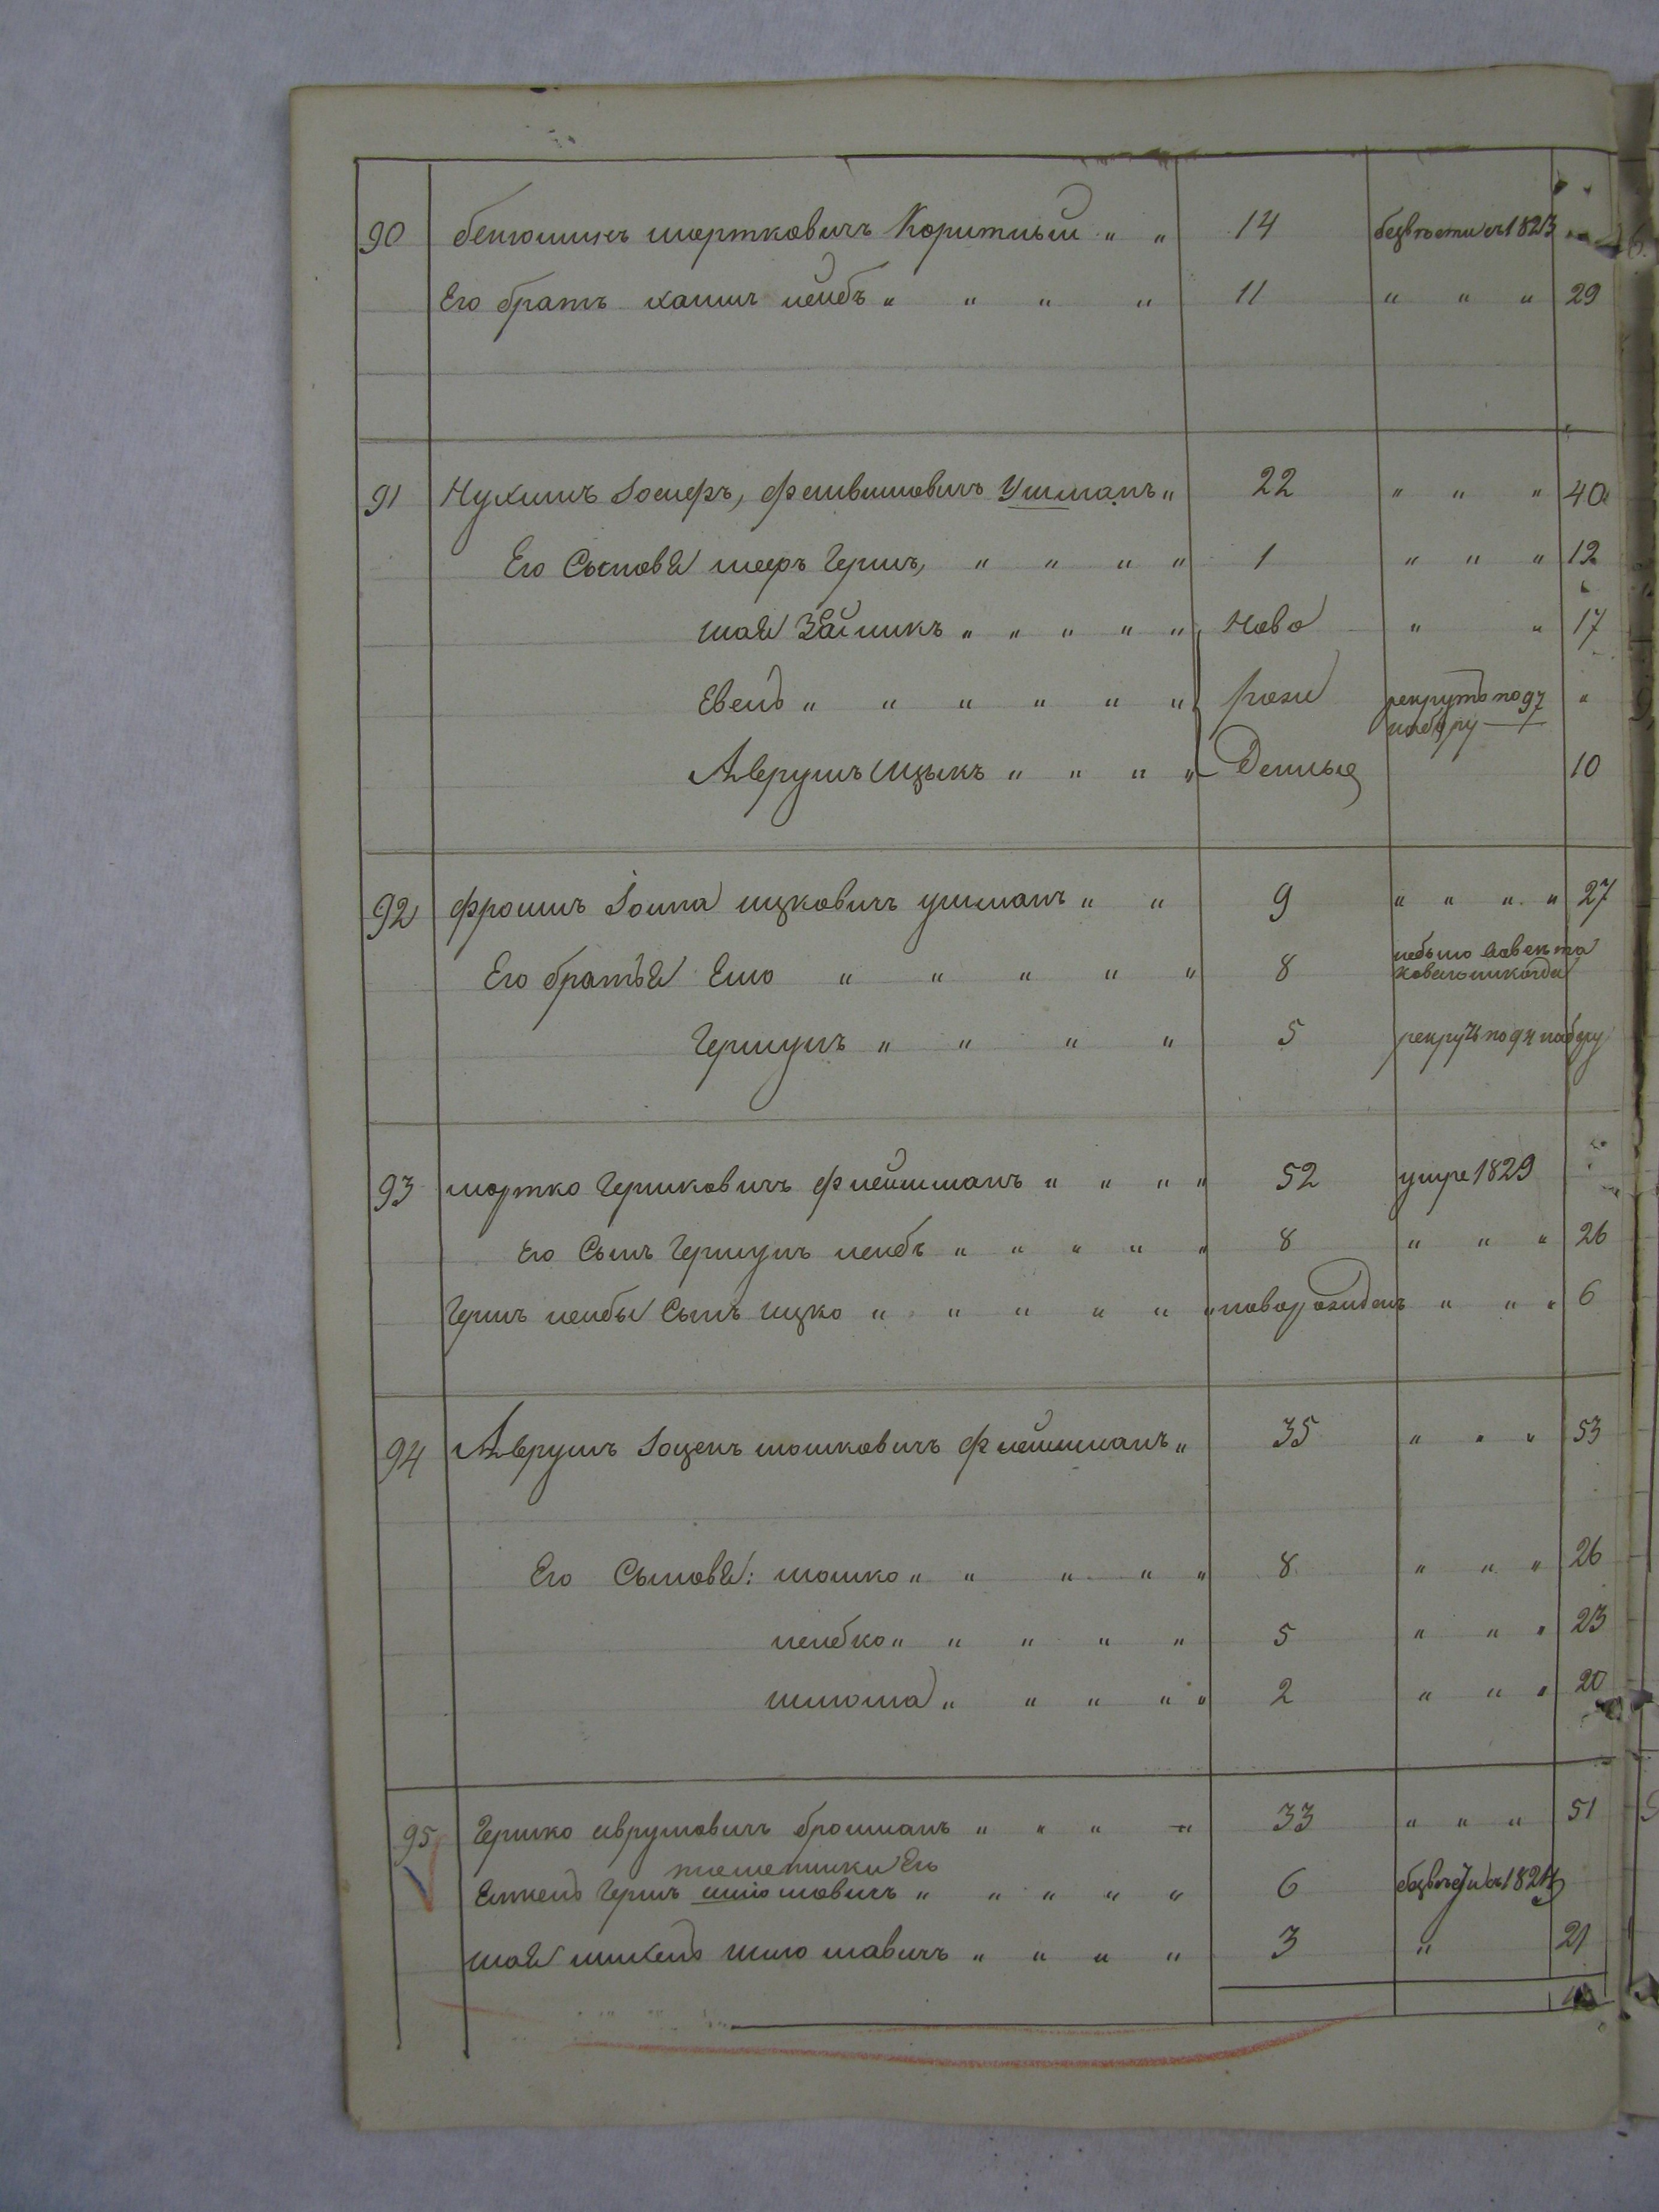 90 Бенюминъ Мортковичъ Коритный " " 14 безвѣсти съ 1823
Его братъ Хаимъ Лейбъ " " " " 11 " " " 29
91 Нухимъ Іосифъ, Фейвишовичъ Ушманъ " 22 " " " 40
Его Сыновя Мееръ Гершъ, " " " " 1 " " " 12
Шая Зайликъ " " " " " Ново " " 17
Евель " " " " " " рож рекрутъ подъ наборъ "
Аврумъ Ицыкъ " " " " Денные 10
92 Фроимъ Іойна Ицковичъ Ушманъ " " 9 " " " " 27
Его братья Ельо " " " " " 8 небыло никогда
Гершунъ " " " " 5 рекрутъ подъ наборъ
93 Мортко Гершковичъ Флейшманъ " " " " 52 умре 1829
Его Сынъ Гершунъ Лейбъ " " " " " 8 " " " 26
Гершъ Лейбы Сынъ Ицко " " " " " " новорожденъ " " " 6
94 Аврумъ Мошковичъ Флейшманъ " 35 " " " 53
Его Сыновя: Мошко " " " " " 8 " " " 26
Лейбко " " " " " 5 " " " 23
Шлома " " " " " 2 " " " 20
95 Гершко Аврумовичъ Фроиманъ " " " " 33 " " " 51
племенники Его
Гершъ Шліомовичъ " " " " " 6 безвѣсти съ 1827
Шая Михель Шліомовичъ " " " " 3 " 21